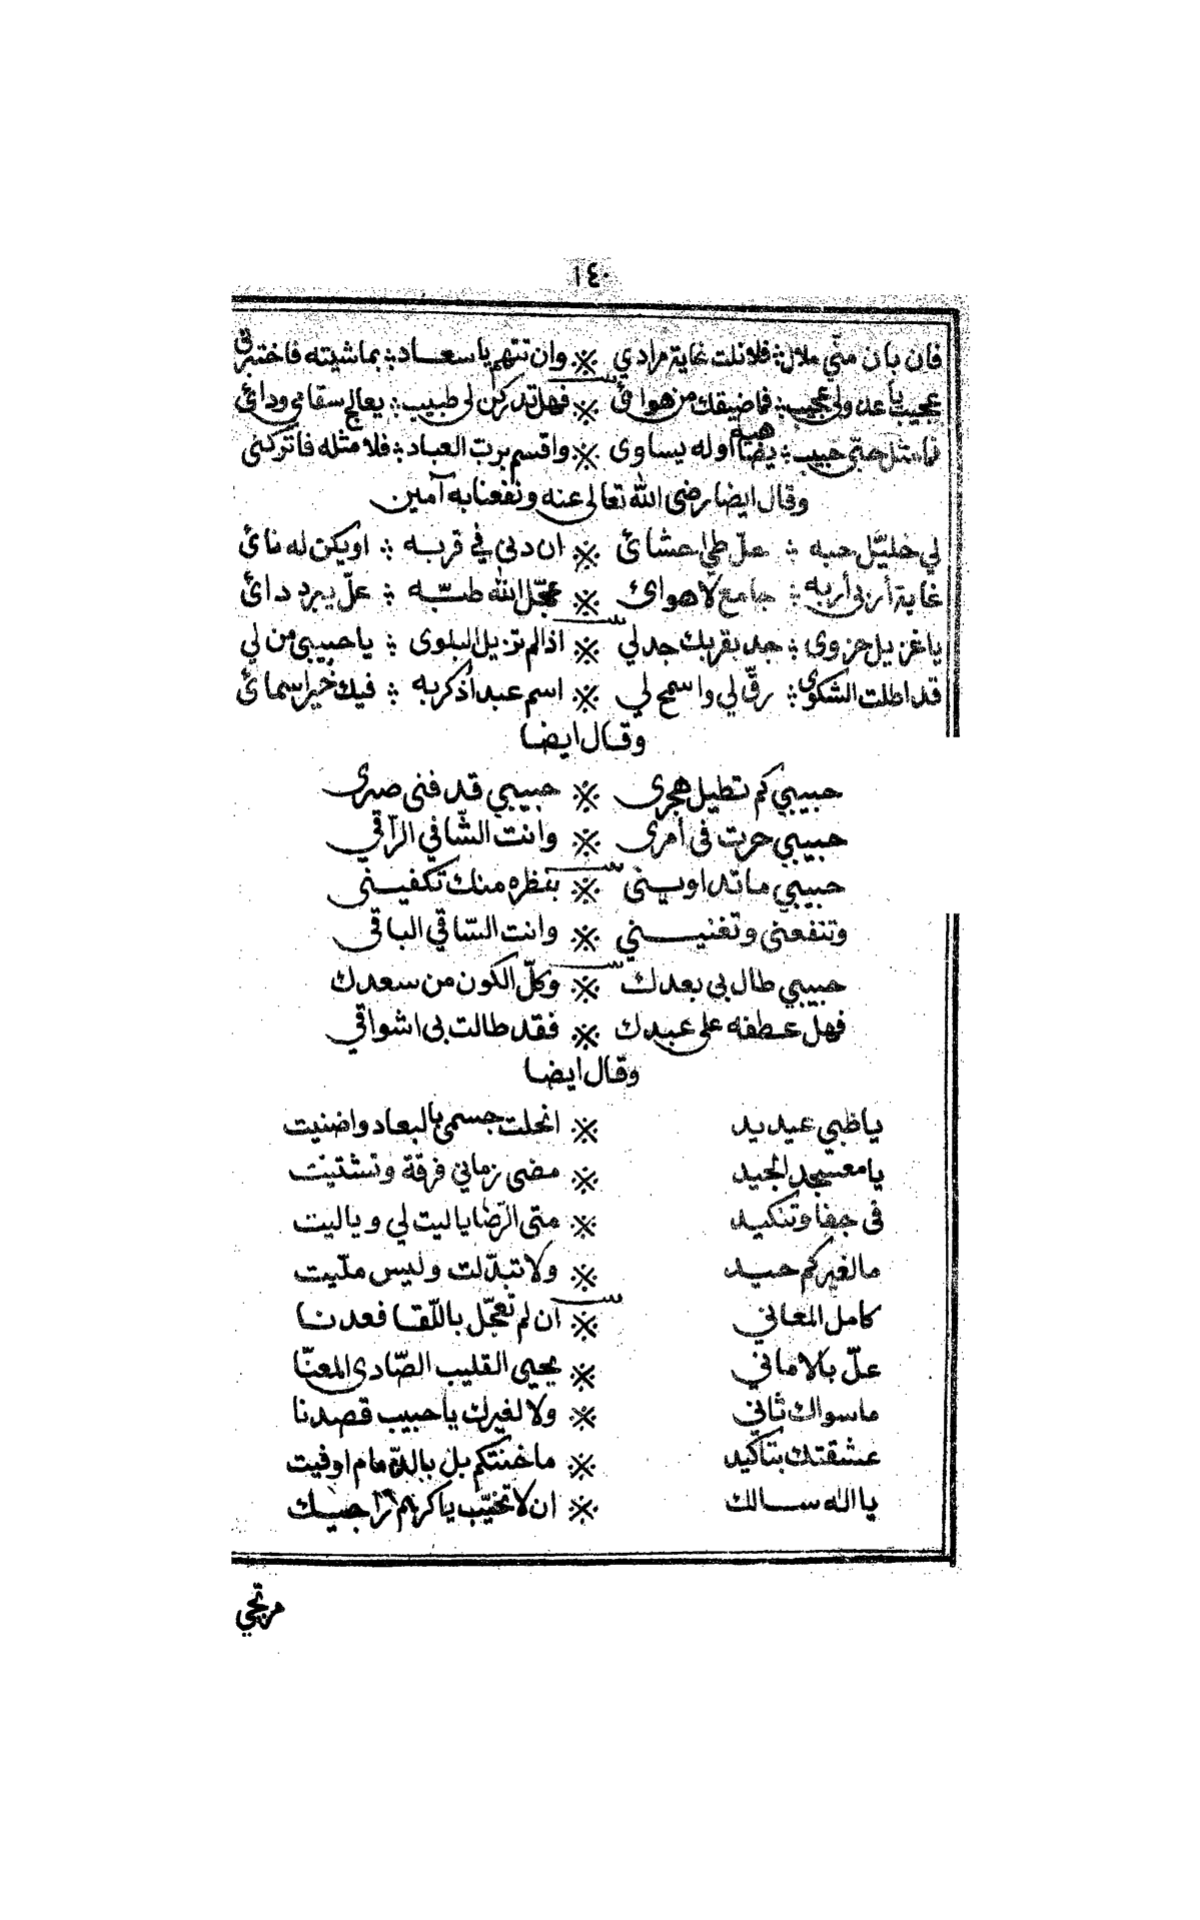 ١٤٠
فان بان منّي ملال ؛ فلا نلت غاية مرادي ※ وان تتهم يا سعاد ؛ بما شيته فاختبرني
عجيب يا عدولي عجيب ؛ فما ضيقك من هوائي ※ فهل تدركن لي طبيب ؛ يعالج سقامي ودائي
فما مثل حتى حبيب ؛ يضاهيه او له يساوى ※ واقسم برب العباد ؛ فلا مثله فاتركني
وقال ايضا رضى الله تعالى عنه ونفعنا به آمين
لي خليّل حبه ؛ علّ طي احشائ ※ ان دنى في قربه ؛ او يكن له نائ
غاية أربى أربه ؛ جامع لاهوائ ※ عجّل الله طبّه ؛ علّ يبرد دائ
يا غزيل حزوى ؛ جد بقربك جد لي ※ اذا لم تزيل البلوى ؛ يا حبيبى من لي
قد اطلت الشكوى ؛ رقّ لي واسمح لي ※ اسم عبد أذكر به ؛ فيك خير اسمائ
وقال ايضا
حبيبي كم تطيل هجرى ※ حبيبي قد فنى صبرى
حبيبي حرت فى أمرى ※ وانت الشّافي الرّاقي
حبيبي ما تداويني ※ بنظره منك تكفيني
وتنفعنى وتغنيني ※ وانت السّاقي الباقى
حبيبي طال بي بعدك ※ وكلّ الكون من سعدك
فهل عطفه على عبدك ※ فقد طالت بى اشواقي
وقال ايضا
يا ظبي عيديد ※ انحلت جسمى بالبعاد واضنيت
يا معسجد الجيد ※ مضى زماني فرقة وتشتيت
فى جفا وتنكيد ※ متى الرّضا يا ليت لي ويا ليت
ما لغيركم حيد ※ ولا تبدّلت وليس ملّيت
كامل المعاني ※ ان لم تعجّل باللّقا فعدنا
علّ بالاماني ※ يحيى القليب الصّادى المعنّا
ما سواك ثاني ※ ولا لغيرك يا حبيب قصدنا
عشقتك بتاكيد ※ ما خنتكم بل بالذّمام اوفيت
يا اله سالك ※ ان لا تخيّب يا كريم راجيك
مرتجي